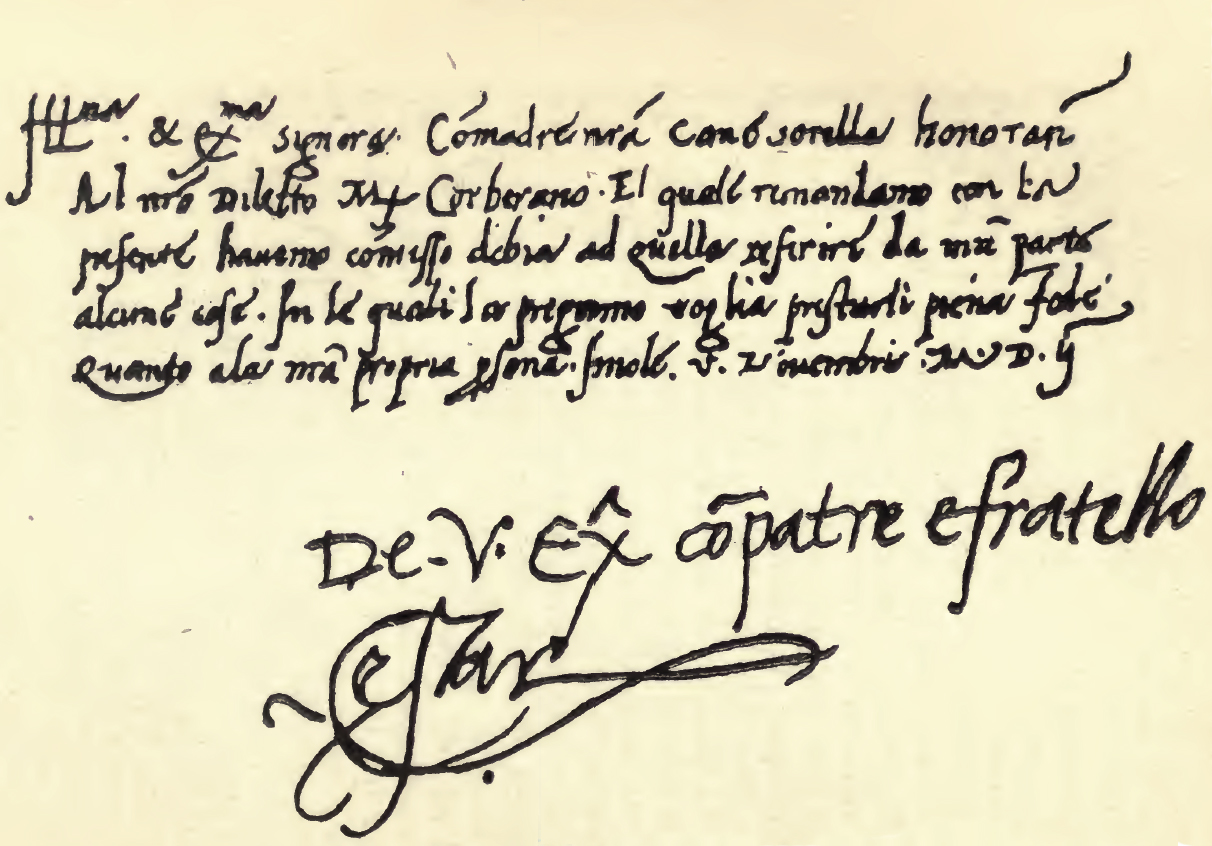 Illma. & Exma Signora. Cómadre nrá comé sorella honoran
Al nró Diletto Mx Corberano. El qualé rimandamo con la
presenté hauemo cómisso debia ad quella referiré da nrã parté
alcuné cosé. In le quali la pregamo voglia prestarli piena fede
Quanto ala nrã propria psona. Imolé. v. Nouembris. M. D. ij
De. V. Ex̂ cõpatre e fratello
Cesar